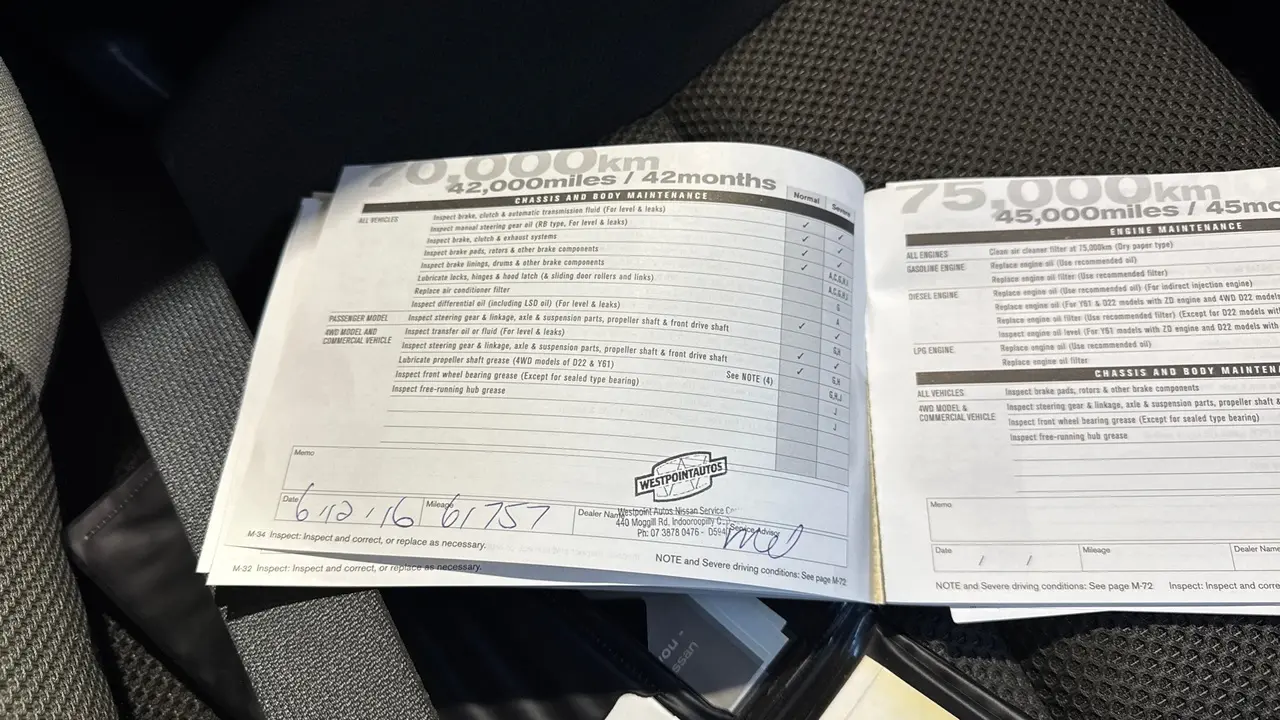 70,000km
42,000miles / 42months
CHASSIS AND BODY MAINTENANCE
Normal
Severe
ALL VEHICLES
Inspect brake, clutch & automatic transmission fluid (For level & leaks)
Inspect manual steering gear oil (RB type, For level & leaks)
Inspect brake, clutch & exhaust systems
Inspect brake pads, rotors & other brake components
Inspect brake linings, drums & other brake components
Lubricate locks, hinges & hood latch (& sliding door rollers and links)
A,C,G,H,I
Replace air conditioner filter
A,C,G,H,I
Inspect differential oil (including LSD oil) (For level & leaks)
G
PASSENGER MODEL
Inspect steering gear & linkage, axle & suspension parts, propeller shaft & front drive shaft
4WD MODEL AND
COMMERCIAL VEHICLE
Inspect transfer oil or fluid (For level & leaks)
Inspect steering gear & linkage, axle & suspension parts, propeller shaft & front drive shaft
G,H
Lubricate propeller shaft grease (4WD models of D22 & Y61)
Inspect front wheel bearing grease (Except for sealed type bearing)
See NOTE (4)
G,H
Inspect free-running hub grease
G,H,J
J
J
Memo
WESTPOINTAUTOS
Date 6.12.16
Mileage 61757
Dealer Name
Westpoint Autos Nissan Service
440 Moggill Rd, Indooroopilly
Service Advisor
Ph: 07 3878 0476 -
M-34 Inspect: Inspect and correct, or replace as necessary.
NOTE and Severe driving conditions: See page M-72
M-32 Inspect: Inspect and correct, or replace as necessary.
75,000km
45,000miles / 45mo
ENGINE MAINTENANCE
ALL ENGINES
Clean air cleaner filter at 75,000km (Dry paper type)
GASOLINE ENGINE
Replace engine oil (Use recommended oil)
Replace engine oil filter (Use recommended filter)
DIESEL ENGINE
Replace engine oil (Use recommended oil) (For indirect injection engine)
Replace engine oil (For Y61 & D22 models with ZD engine and 4WD D22 models
Replace engine oil filter (Use recommended filter) (Except for D22 models
Inspect engine oil level (For Y61 models with ZD engine and D22 models with
LPG ENGINE
Replace engine oil (Use recommended oil)
Replace engine oil filter
CHASSIS AND BODY MAINTEN
ALL VEHICLES
Inspect brake pads, rotors & other brake components
4WD MODEL &
COMMERCIAL VEHICLE
Inspect steering gear & linkage, axle & suspension parts, propeller shaft &
Inspect front wheel bearing grease (Except for sealed type bearing)
Inspect free-running hub grease
Memo
Date / /
Mileage
Dealer Name
NOTE and Severe driving conditions: See page M-72
Inspect: Inspect and corre
you -
ssan